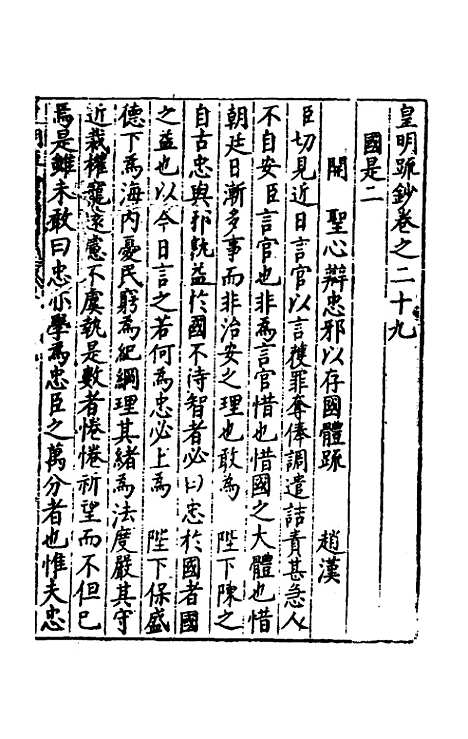 皇明疏鈔卷之二十九
國是二
開 聖心辯忠邪以存國體疏 趙漢
臣切見近日言官以言獲罪奪俸調遣詰責甚急人
不自安臣言官也非為言官惜也惜國之大體也惜
朝廷日漸多事而非治安之理也敢為 陛下陳之
自古忠與邪孰益於國不待智者必曰忠於國者國
之益也以今日言之若何為忠必上為 陛下保盛
德下為海内憂民窮為紀綱理其緒為法度嚴其守
近裁權寵遠慮不虞執是數者惓惓祈望而不但已
焉是雖未敢曰忠亦學為忠臣之萬分者也惟夫忠